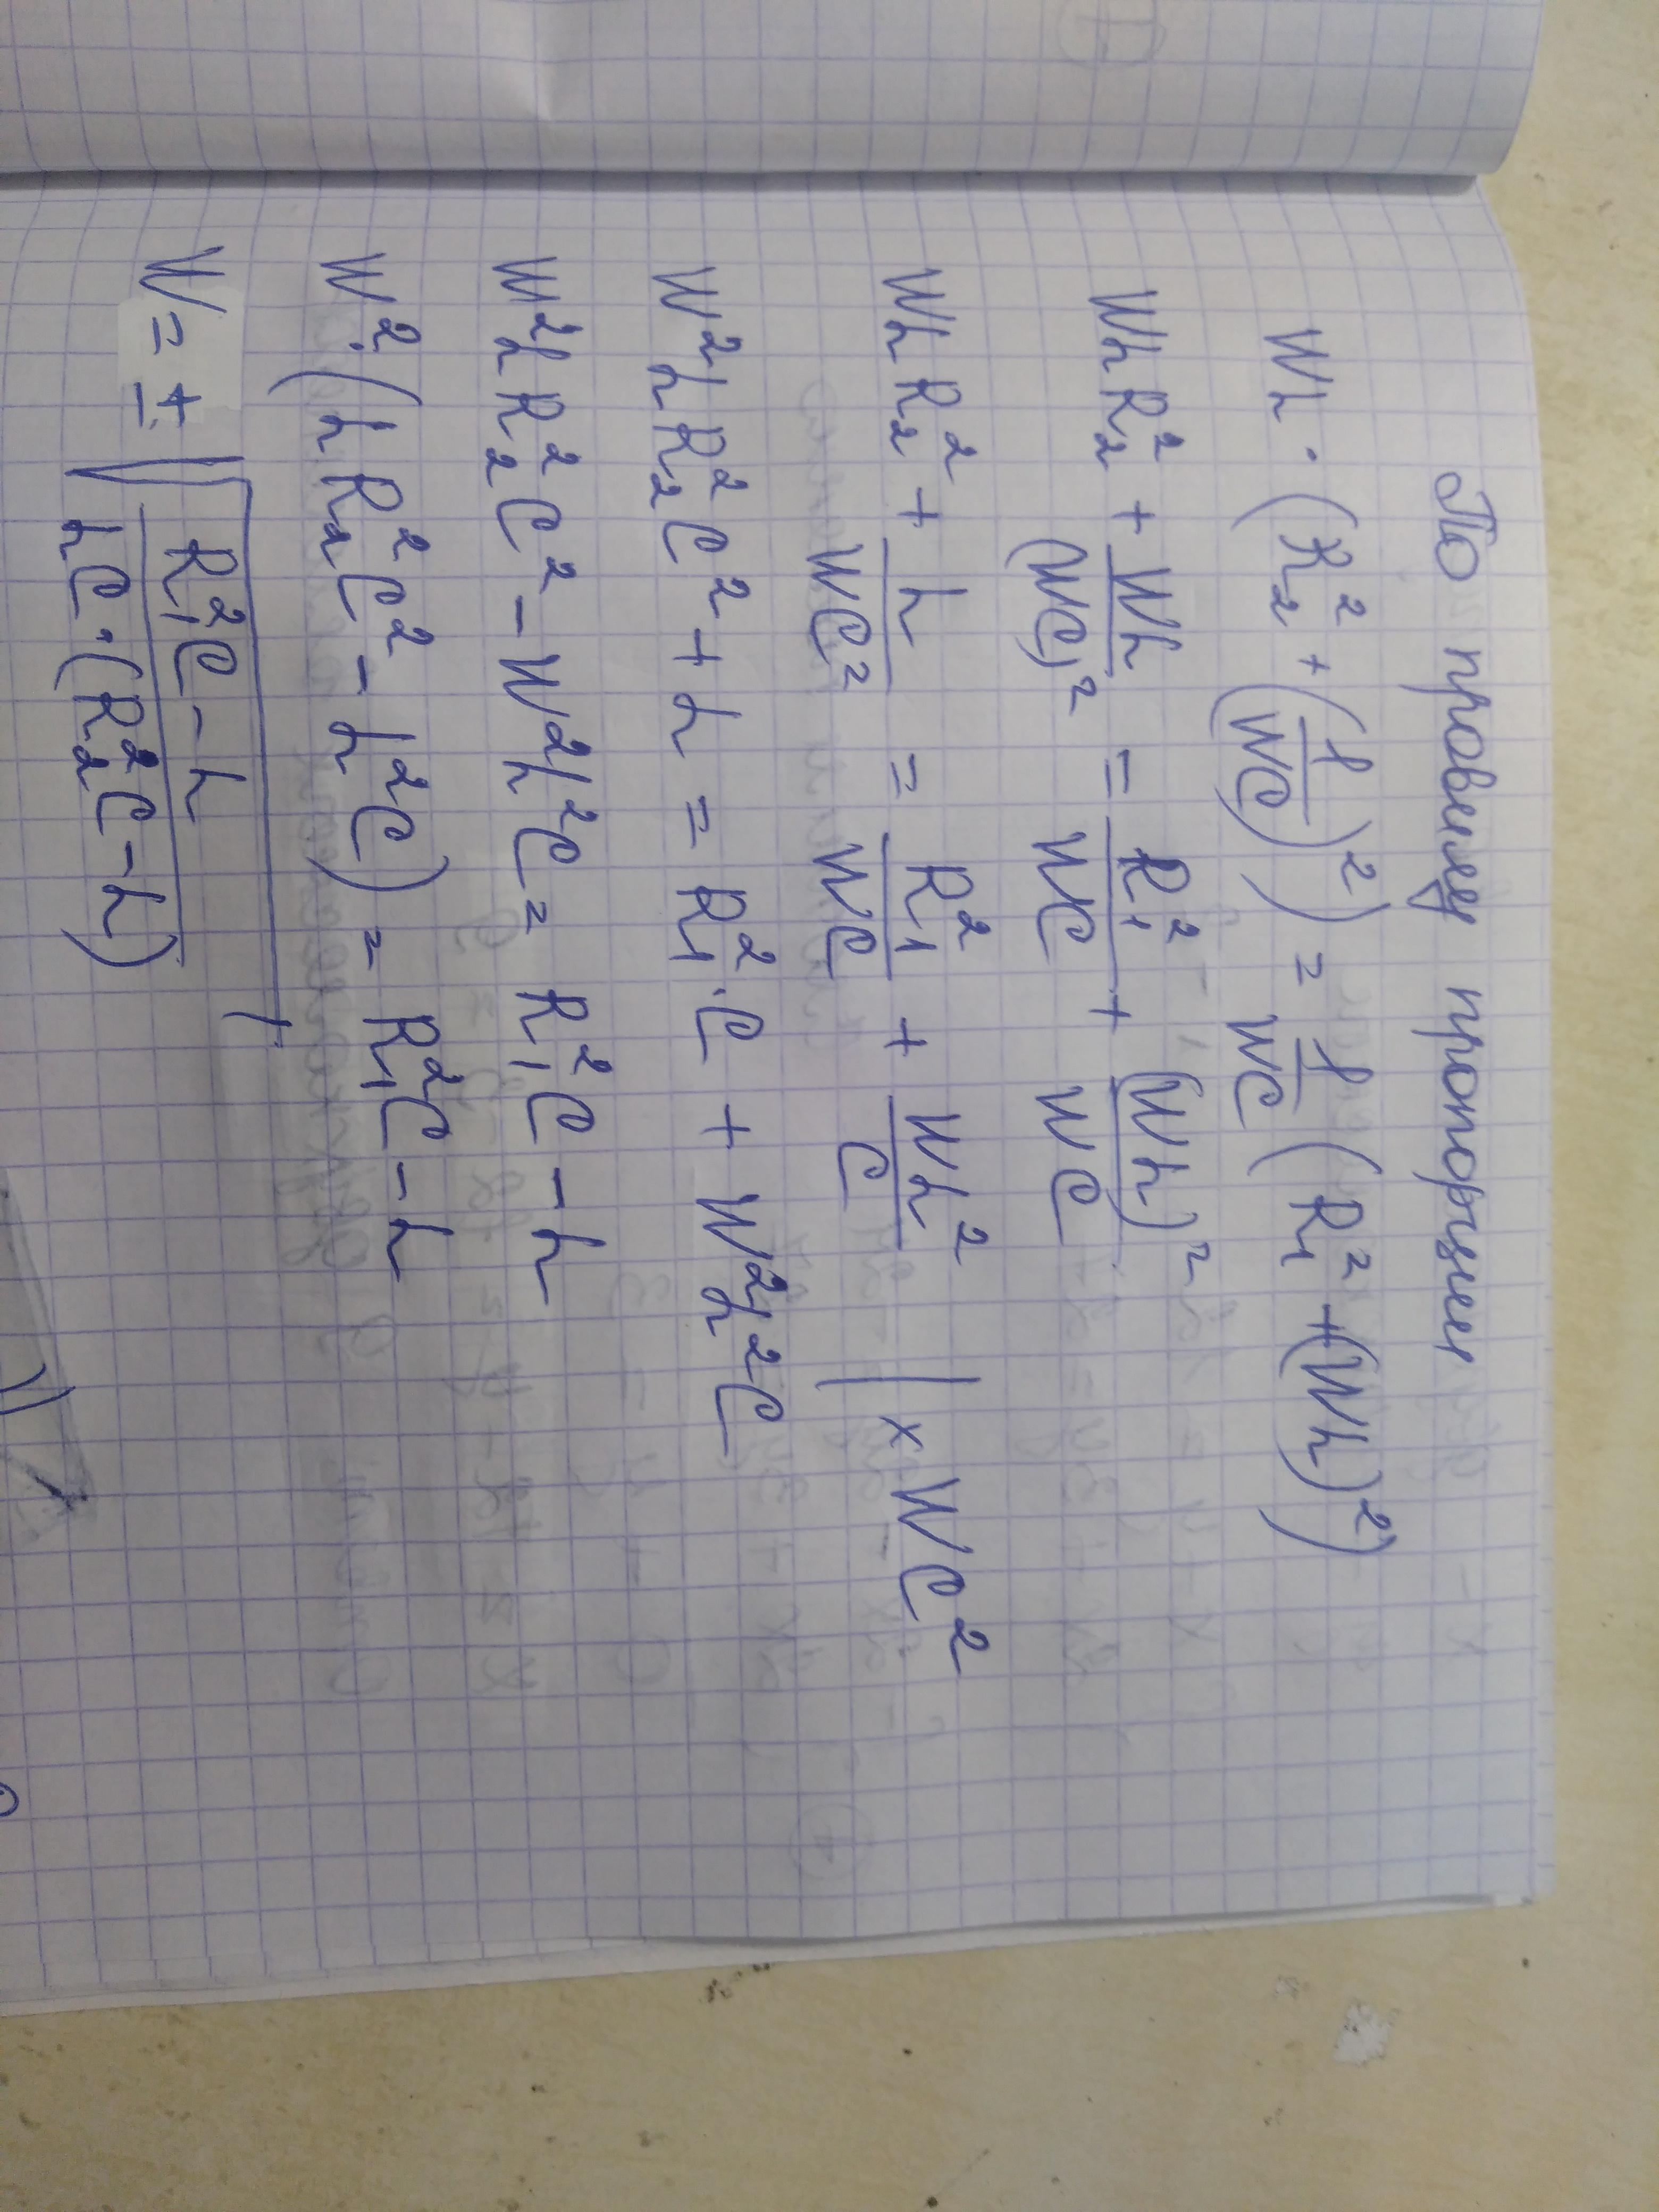 По правилу пропорции
WL · (R₂² + (1/WC)²) = 1/WC (R₁² + (WL)²)
WLR₂² + WL/(WC)² = R₁²/WC + (WL)²/WC
WLR₂² + L/WC² = R₁²/WC + WL²/C | × WC²
W²LR₂²C² + L = R₁²·C + W²L²C
W²LR₂²C² - W²L²C = R₁²C - L
W²·(LR₂²C² - L²C) = R₁²C - L
W = ± √(R₁²C - L / LC·(R₂²C - L))